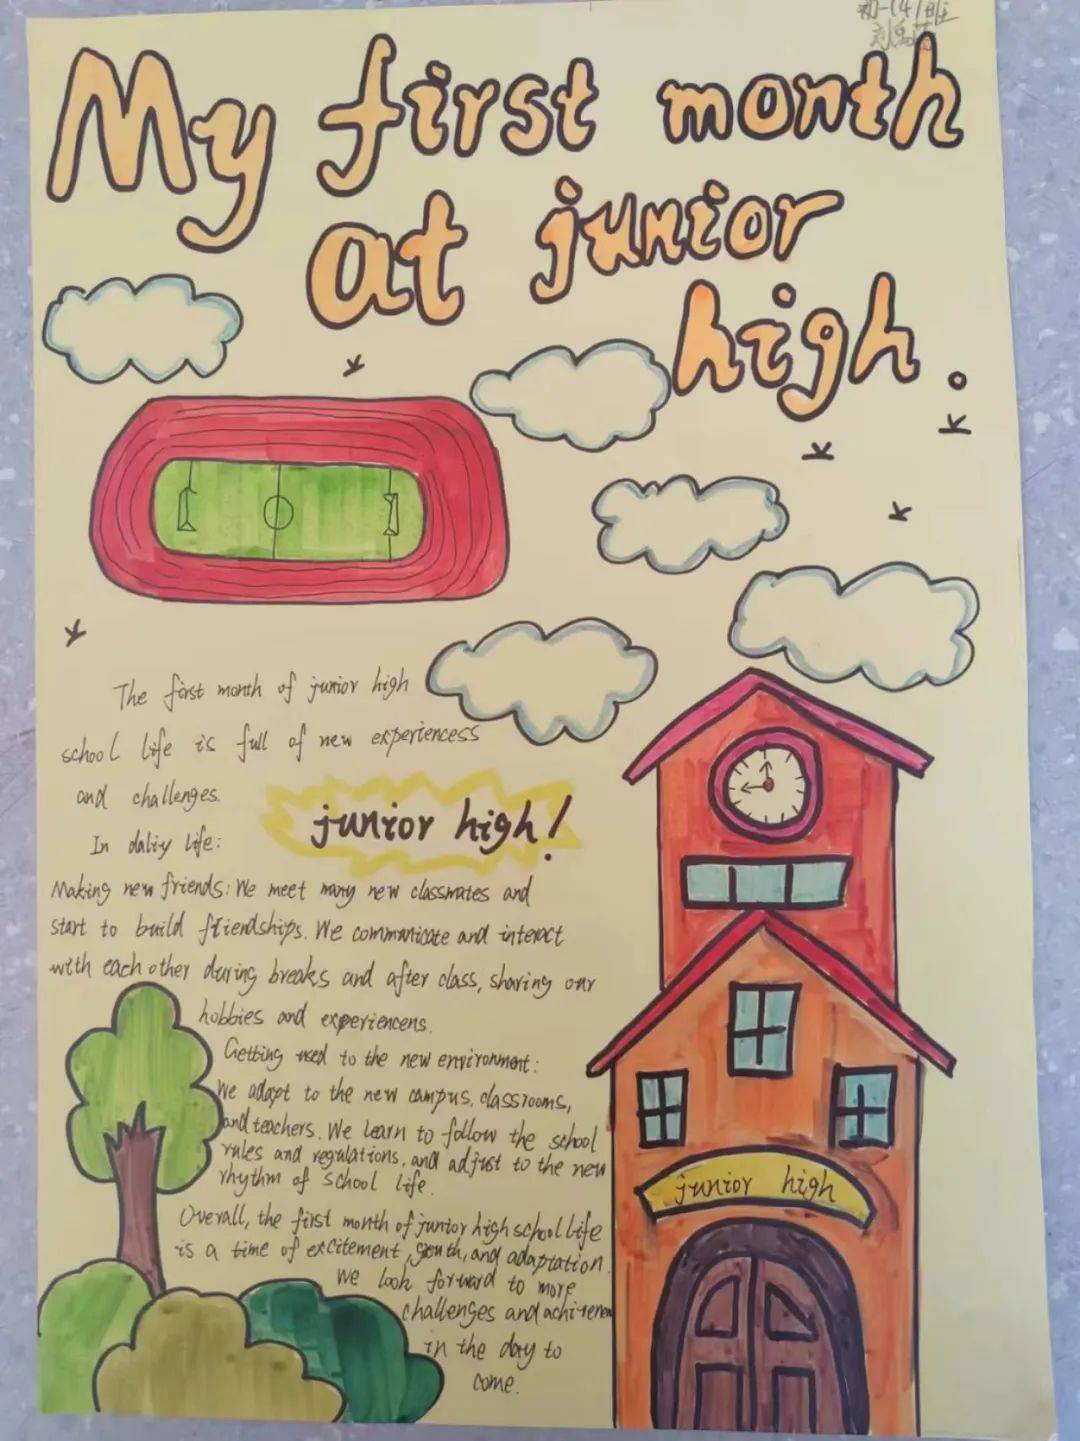 初一(4)班
刘
My first month
at junior
high.
The first month of junior high
school life is full of new experiencess
and challenges.
junior high!
In daliy life:
Making new friends: We meet many new classmates and
start to build friendships. We communicate and interact
with each other during breaks and after class, sharing our
hobbies and experiencens.
Getting used to the new environment:
We adapt to the new campus, classrooms,
and teachers. We learn to follow the school
rules and regulations, and adjust to the new
rhythm of school life.
Overall, the first month of junior high school life
is a time of excitement, growth, and adaptation.
We look forward to more
challenges and
in the day to
come.
junior high